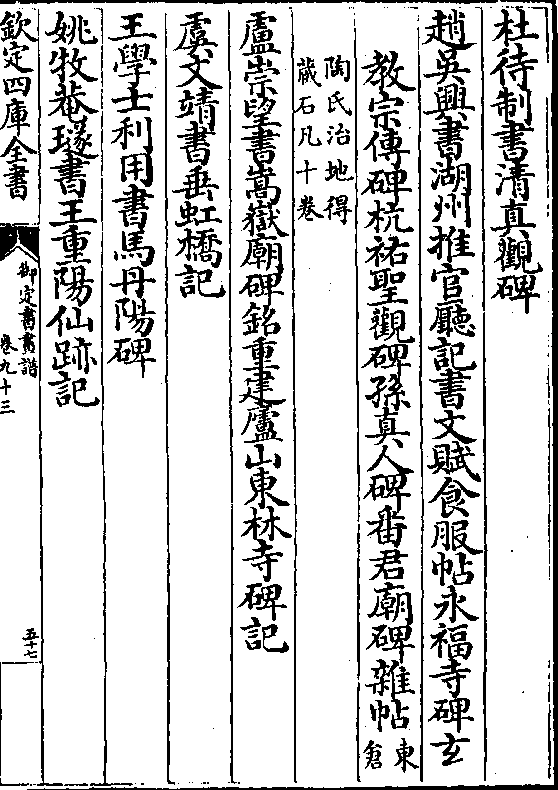 杜待制書清真觀碑
趙吳興書湖州推官廳記書文賦食服帖永福寺碑玄
教宗傳碑杭祐聖觀碑孫真人碑番君廟碑雜帖東倉
陶氏治地得
藏石凡十卷
盧崇望書嵩嶽廟碑銘重建廬山東林寺碑記
虞文靖書垂虹橋記
王學士利用書馬丹陽碑
姚牧菴璲書王重陽仙跡記
欽定四庫全書
御定書畫譜
卷九十三
五十七